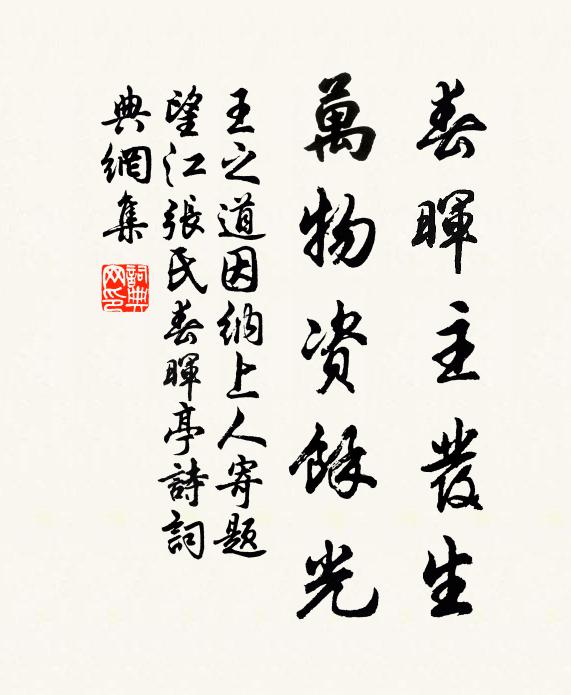 春暉主發生
萬物資餘光
王之道因納上人寄題
望江張氏春暉亭詩詞
典網集
詞典网印